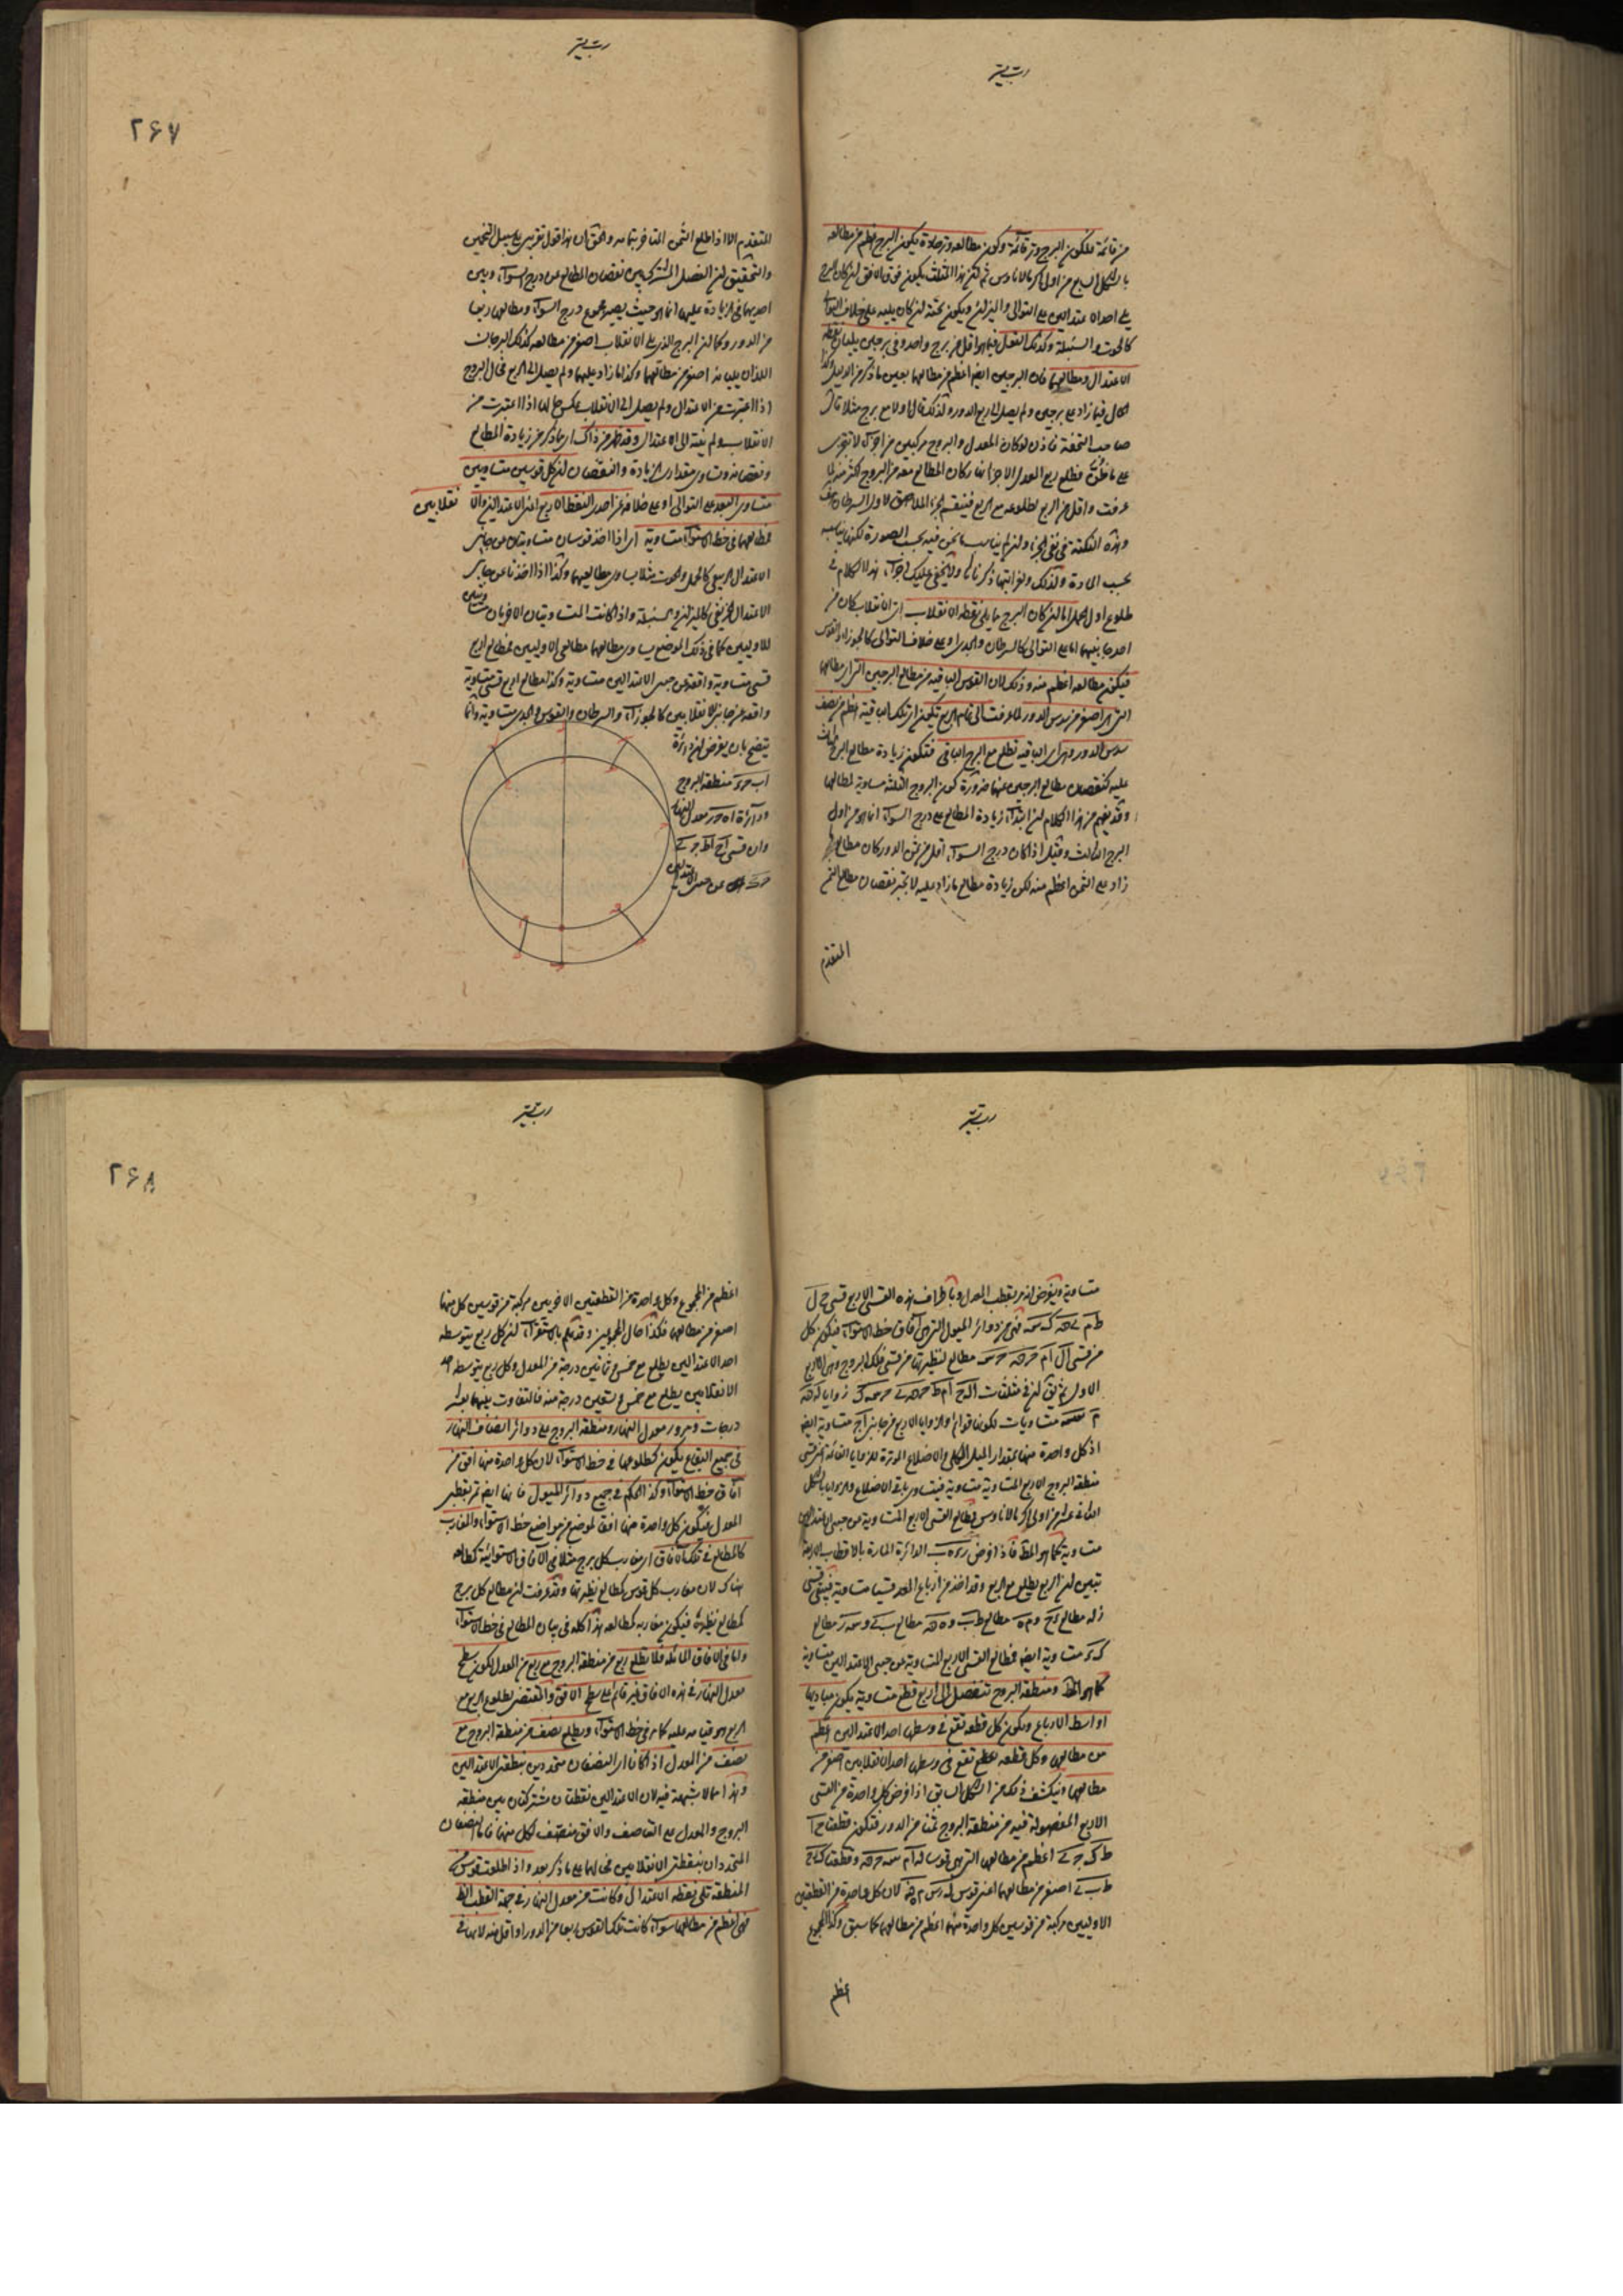 من قائمة فلكون البرج وتر قائمة وكون مطالعه وتر حادة يكون البرج اعظم من مطالعه
بالشكل السابع من اولى اكر مانالاوس ثم لكن هذا المثلث يكون فوق الافق ان كان البرج
يلي احد الاعتدالين على التوالى والميزان ويكون تحته ان كان يليه على خلاف التوالى
كالحوت والسنبلة وكذلك الفعل فيما هو اقل من برج واحد وفى برجين يليان نقطة
الاعتدال ومطالعهما فان البرجين ايضا اعظم من مطالعهما بعين ما ذكر من الدليل وكذا
الحال فيما زاد على برجين ولم يصل الى ربع الدور ولذلك قال اولا مع برج مثلا قال
صاحب التحفة فاذن لو كان المعدل والبروج مركبين من اجزاء لا تتجزى
على ما ظن فطلع ربع المعدل الا جزءا كان المطالع معه من البروج اكثر منه لما
عرفت واقل من الربع لطلوعه مع الربع فينقسم الجزء الملاصق لاول السرطان
وهذه النكتة فى نفى الجزء وان لم يناسب ما نحن فيه بحسب الصورة لكنها يناسبه
بحسب المادة ولذلك ولغرابتها ذكرناها ولا يخفى عليك اجراء هذا الكلام فى
طلوع اول الحمل اما ان كان البرج مما يلى نقطة الانقلاب اى الانقلاب كان من
احد جانبيها اما على التوالى كالسرطان والجدى او على خلاف التوالى كالجوزاء والقوس
فيكون مطالعه اعظم منه وذلك لان القوس الباقية من مطالع البرجين التى ان مطالعهما
التى هى اصغر من سدس الدور لما عرفت الى تمام الربع تكون اى تلك الباقية اعظم من نصف
سدس الدور وهى اى الباقية تطلع مع البرج الباقى فتكون زيادة مطالع البرج الثالث
عليه كنقصان مطالع البرجين عنهما ضرورة كون البروج الثلثة مساوية لمطالعها
وقد يفهم من هذا الكلام ان ابتداء زيادة المطالع على درج السواء انما هو من اول
البرج الثالث وقيل اذا كان درج السواء اقل من ثمن الدور كان مطالع ما
زاد على الثمن اعظم منه لكن زيادة مطالع ما زاد عليه لا تجبر نقصان مطالع الثمن
المتقدم
٢٦٧
المتقدم الا اذا طلع الثمن المتاخر بتمامه والحق ان هذا قول تقريبى على سبيل التخمين
والتحقيق ان الفصل المشترك بين نقصان المطالع عن درج السواء وبين
اخذها فى الزيادة عليها انما هو حيث يصير مجموع درج السواء ومطالعها ربعا
من الدور وكما ان البرج الذى يلى الانقلاب اصغر من مطالعه كذلك البرجان
اللذان يليانه اصغر من مطالعهما وكذا ما زاد عليهما ولم يصل الى الربع فحال البروج
اذا اعتبرت من الاعتدال ولم يصل الى الانقلاب عكس حالها اذا اعتبرت من
الانقلاب ولم ينته الى الاعتدال وقد ظهر من ذلك اى مما ذكر من زيادة المطالع
ونقصانه وتساوى مقدارى الزيادة والنقصان ان كل قوسين متساويتين
متساوى البعد على التوالى او على خلافه عن احدى النقط الاربع اعنى الاعتدالين والا نقلابين
مطالعهما فى خط الاستواء متساوية اى اذا اخذ قوسان متساويتان من جانبى
الاعتدال الربيعى كالحمل والحوت مثلا يساوى مطالعهما وكذا اذا اخذتا من جانبى
الاعتدال الخريفى كالميزان والسنبلة واذا كانت المتساويتان الاخريان متساويتين
للاوليين كما فى ذلك الموضع يساوى مطالعهما مطالعى الاوليين فمطالع اربع
قسى متساوية واقعة من جنبى الاعتدالين متساوية وكذا مطالع اربع قسى متساوية
واقعة من جانبى الانقلابين كالجوزاء والسرطان والقوس والجدى متساوية وانما
يتضح بان يفرض ان دائرة
اب حد منطقة البروج
ودائرة اه حر معدل النهار
وان قسى اح اط حى
حك من جنبى الاعتدالين
متساوية ويفرض انه مر بقطب المعدل وباطراف هذه القسى الاربع قسى ح ل
ط م ى ه ك سه فهى من دوائر الميول التى هى افاق خط الاستواء فيكون كل
من قسى ال ام حه حسه مطالع لنظيرتها من قسى فلك البروج وهى الاربع
الاول ثم نقول ان فى مثلثات الح ام ط حه ى حسه ك زوايا ل ه
م سه متساويات لكونها قوائم والزوايا الاربع من جانبى اح متساوية ايضا
اذ كل واحدة منها بمقدار الميل الكلى والاضلاع الموترة للزوايا القائمة اعنى قسى
منطقة البروج الاربع المتساوية متساوية فيتساوى باقى الاضلاع والزوايا بالشكل
الثانى عشر من اولى اكر مانالاوس فمطالع القسى الاربع المتساوية من جنبى الاعتدالين
متساوية كما هو المط فاذا فرض د ه ب الدائرة المارة بالاقطاب الاربعة
تبين ان الربع يطلع مع الربع وقد اخذ من ارباع المعدل قسيا متساوية فبقى قسى
زل مطالع دح وم ه مطالع ط ب وه ه مطالع ب ى وسه ر مطالع
ك د متساوية ايضا فمطالع القسى الاربع المتساوية من جنبى الاعتدالين متساوية
كما هو المط ومنطقة البروج تنفصل الى اربع قطع متساوية يكون مباديها
اواسط الارباع ويكون كل قطعة تقع فى وسطها احد الاعتدالين اعظم
من مطالعها وكل قطعة تقع فى وسطها احد الانقلابين اصغر من
مطالعها وينكشف ذلك من الشكل السابق اذا فرض كل واحدة من القسى
الاربع المفصولة فيه من منطقة البروج ثمنا من الدور فتكون قطعتا ح ا
ط ك ح ى اعظم من مطالعهما التى هى قوسا ل ا م سه ح ه وقطعتا ك د ح
ط ب ى اصغر من مطالعهما اعنى قوسى ل ر س م ه ه لان كل واحدة من القطعتين
الاوليين مركبة من قوسين كل واحدة منهما اعظم من مطالعها كما سبق وكذا المجموع
اعظم
٢٦٨
اعظم من المجموع وكل واحدة من القطعتين الاخريين مركبة من قوسين كل منهما
اصغر من مطالعها فكذا حال المجموعين وقد علم بالاستقراء ان كل ربع يتوسطه
احد الاعتدالين يطلع مع خمس وثمانين درجة من المعدل وكل ربع يتوسطه احد
الانقلابين يطلع مع خمس وتسعين درجة منه فالتفاوت بينهما بعشر
درجات ومرور معدل النهار ومنطقة البروج على دوائر انصاف النهار
فى جميع البقاع يكون كطلوعها فى خط الاستواء لان كل واحدة منها افق من
آفاق خط الاستواء وكذا الحكم فى جميع دوائر الميول فانها ايضا تمر بقطبى
المعدل فيكون كل واحدة منها افقا لموضع من مواضع خط الاستواء والمغارب
كالمطالع فى تلك الافاق اى مغارب كل برج مثلا فى الافاق الاستوائية كمطالعه
هناك لان مغارب كل قوس كمطالع نظيرتها وقد عرفت ان مطالع كل برج
كمطالع نظيره فيكون مغاربه كمطالعه هذا كله فى بيان المطالع فى خط الاستواء
واما فى الافاق المائلة فلا يطلع ربع من منطقة البروج مع ربع من المعدل لكون سطح
معدل النهار فى هذه الافاق غير قائم على سطح الافق والمقتضى لطلوع الربع مع
الربع هو قيامه عليه كما مر فى خط الاستواء ويطلع نصف من منطقة البروج مع
نصف من المعدل اذا كانا اى النصفان متحددين بنقطتى الاعتدالين
وهذا مما لا شبهة فيه لان الاعتدالين نقطتان مشتركتان بين منطقة
البروج والمعدل على التناصف والافق منصف لكل منهما فاما النصفان
المتحددان بنقطتى الانقلابين فحالهما على ما ذكر بعد واذا طلعت قوس من
المنطقة تلى نقطة الاعتدال وكانت من معدل النهار فى جهة القطب الظاهر
فهى اعظم من مطالعها سواء كانت تلك القوس ربعا من الدور او اقل منه لانها فى